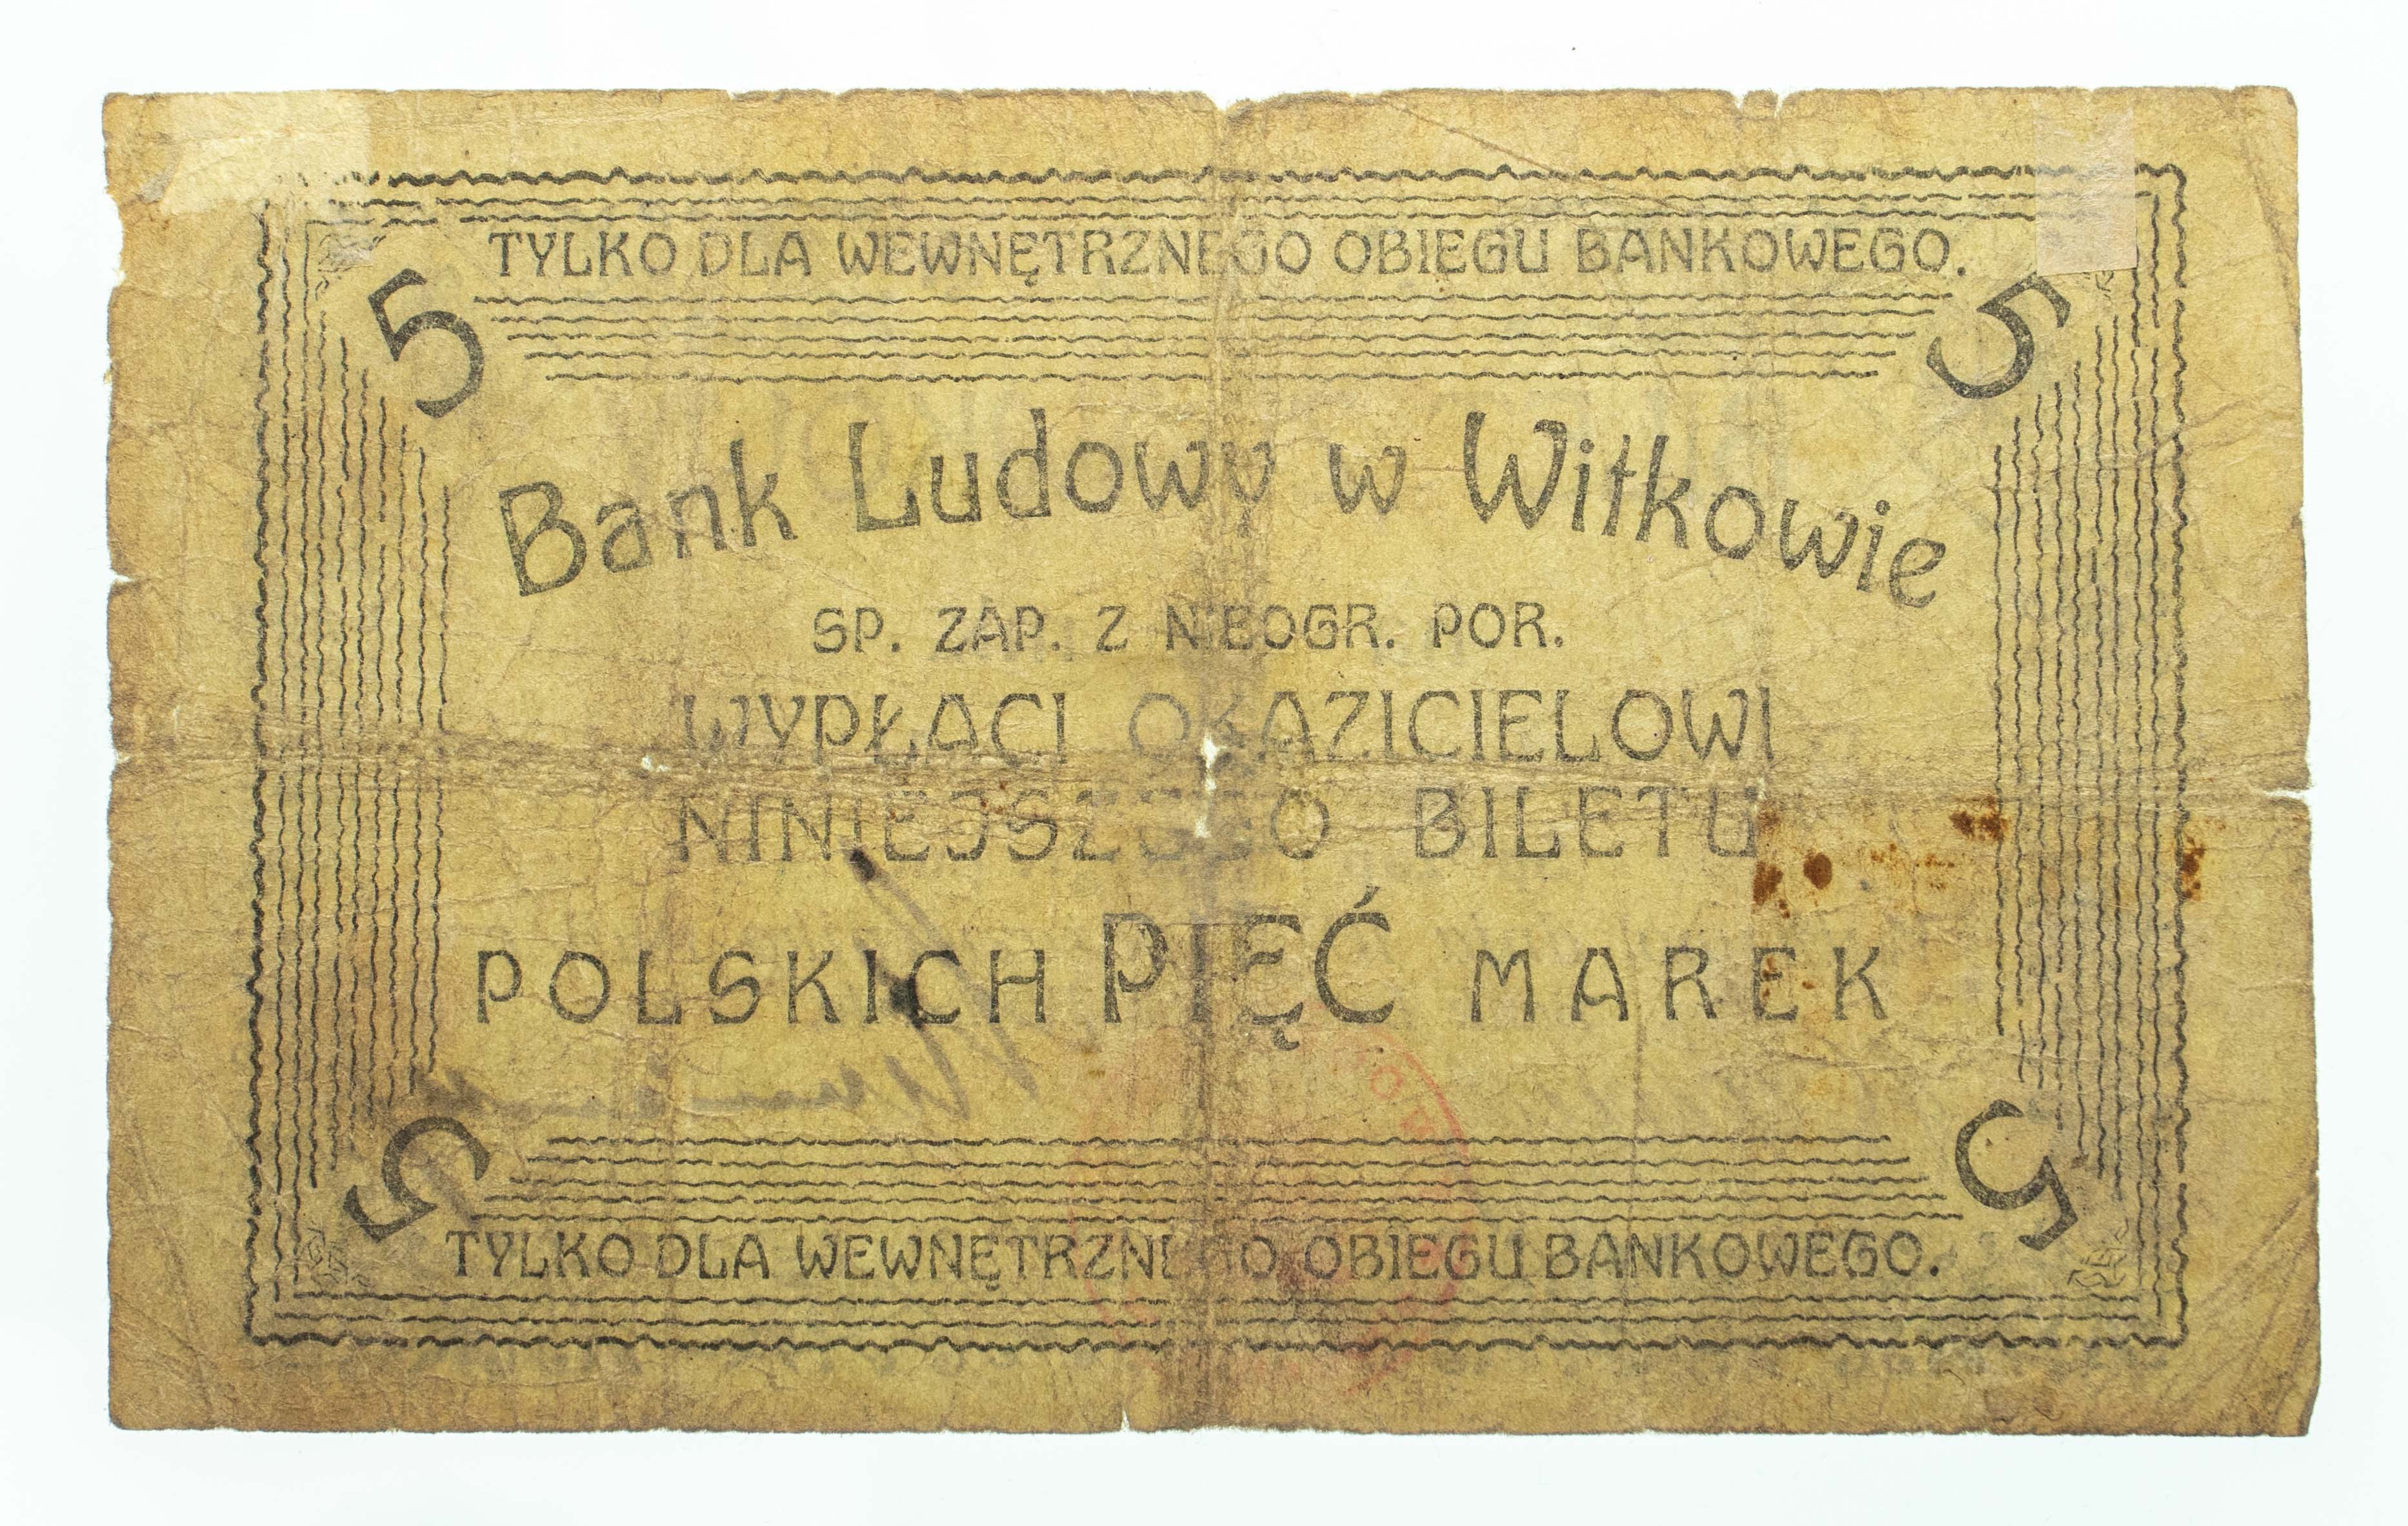 TYLKO DLA WEWNĘTRZNEGO OBIEGU BANKOWEGO.
5 5
Bank Ludowy w Witkowie
SP. ZAP. Z NIEOGR. POR.
WYPŁACI OKAZICIELOWI
NINIEJSZEGO BILETU
POLSKICH PIĘĆ MAREK
5 5
TYLKO DLA WEWNĘTRZNEGO OBIEGU BANKOWEGO.